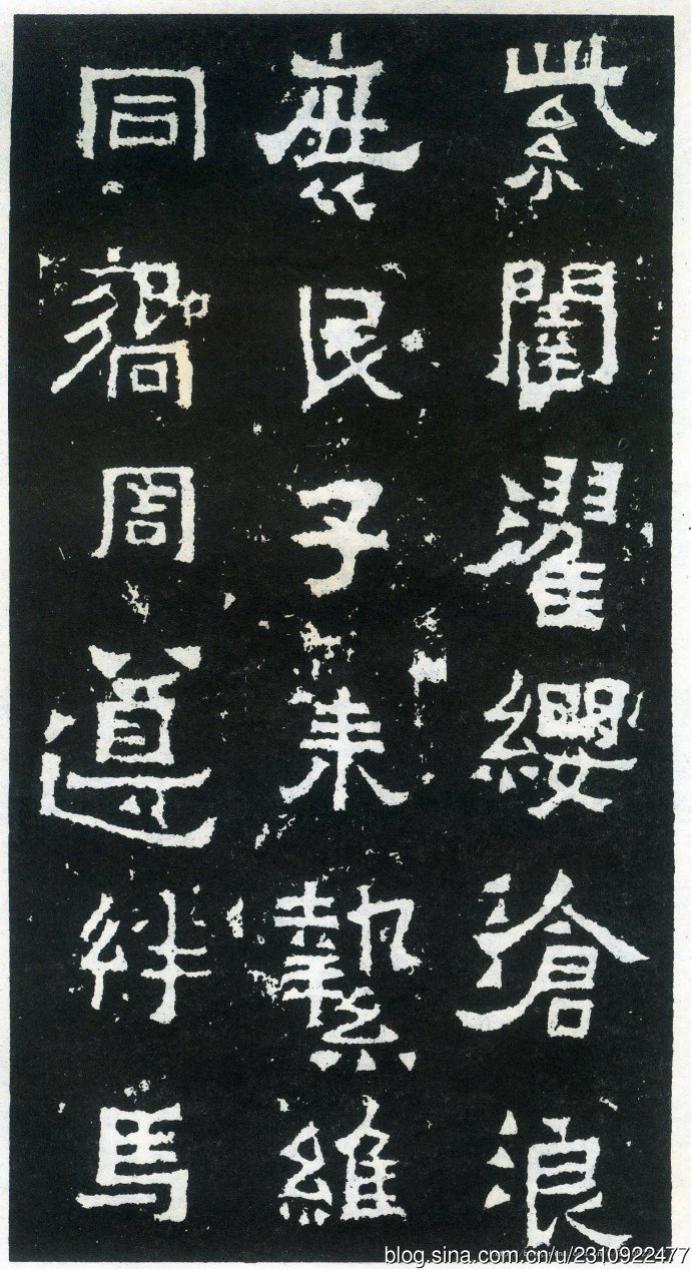 紫閨濯纓滄浪
庶民子来縶維
同嚮周遵絆馬
blog.sina.com.cn/u/2310922477